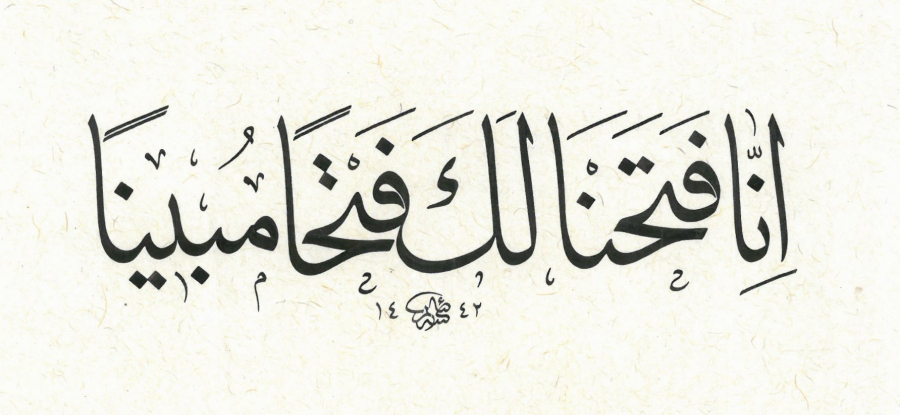 اِنَّا فَتَحْنَا لَكَ فَتْحًا مُبٖينًا
١٤٤٢